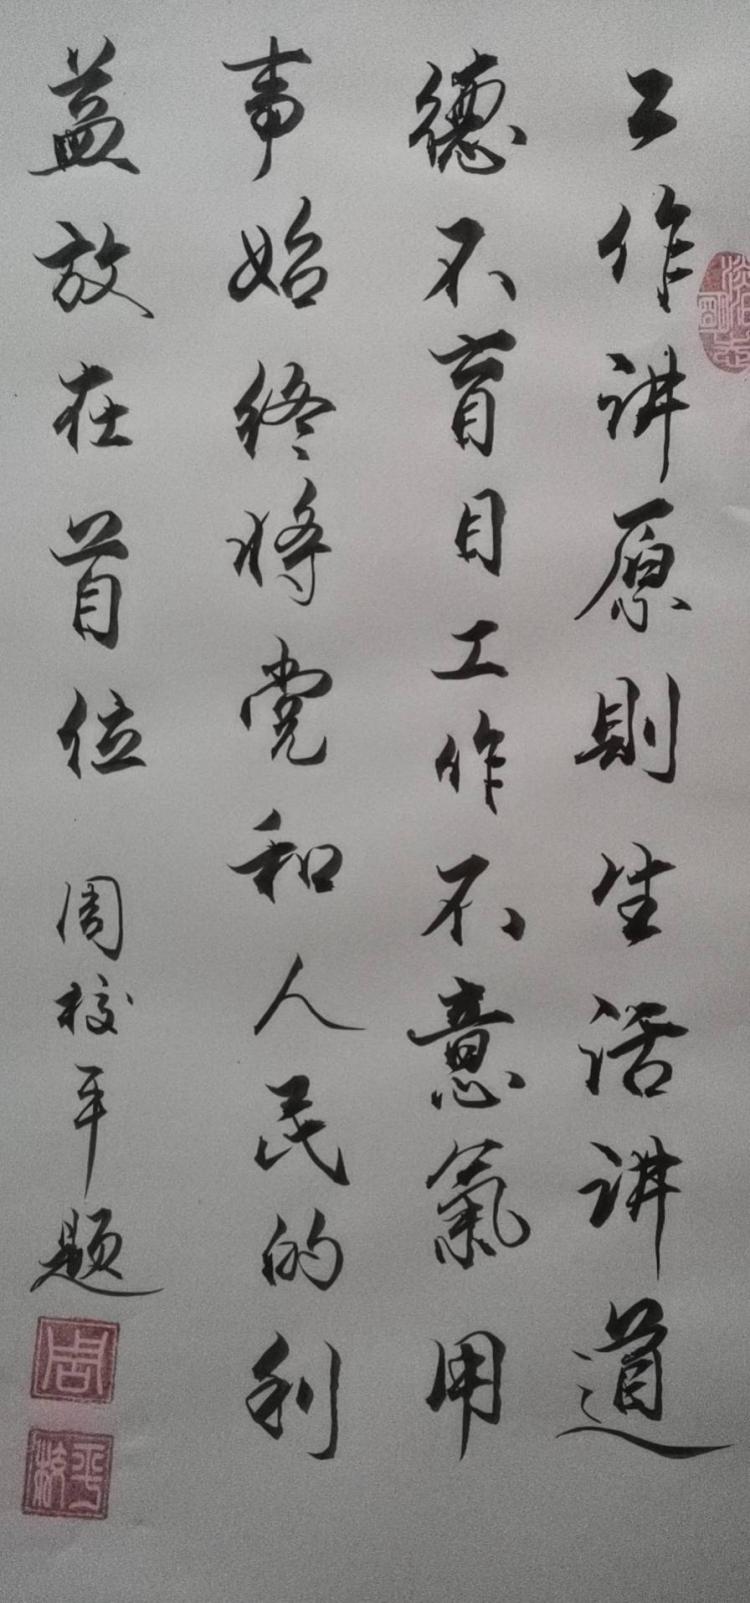 工作讲原则生活讲道
德不盲目工作不意氣用
事始终将党和人民的利
益放在首位
周校平题
周
校平